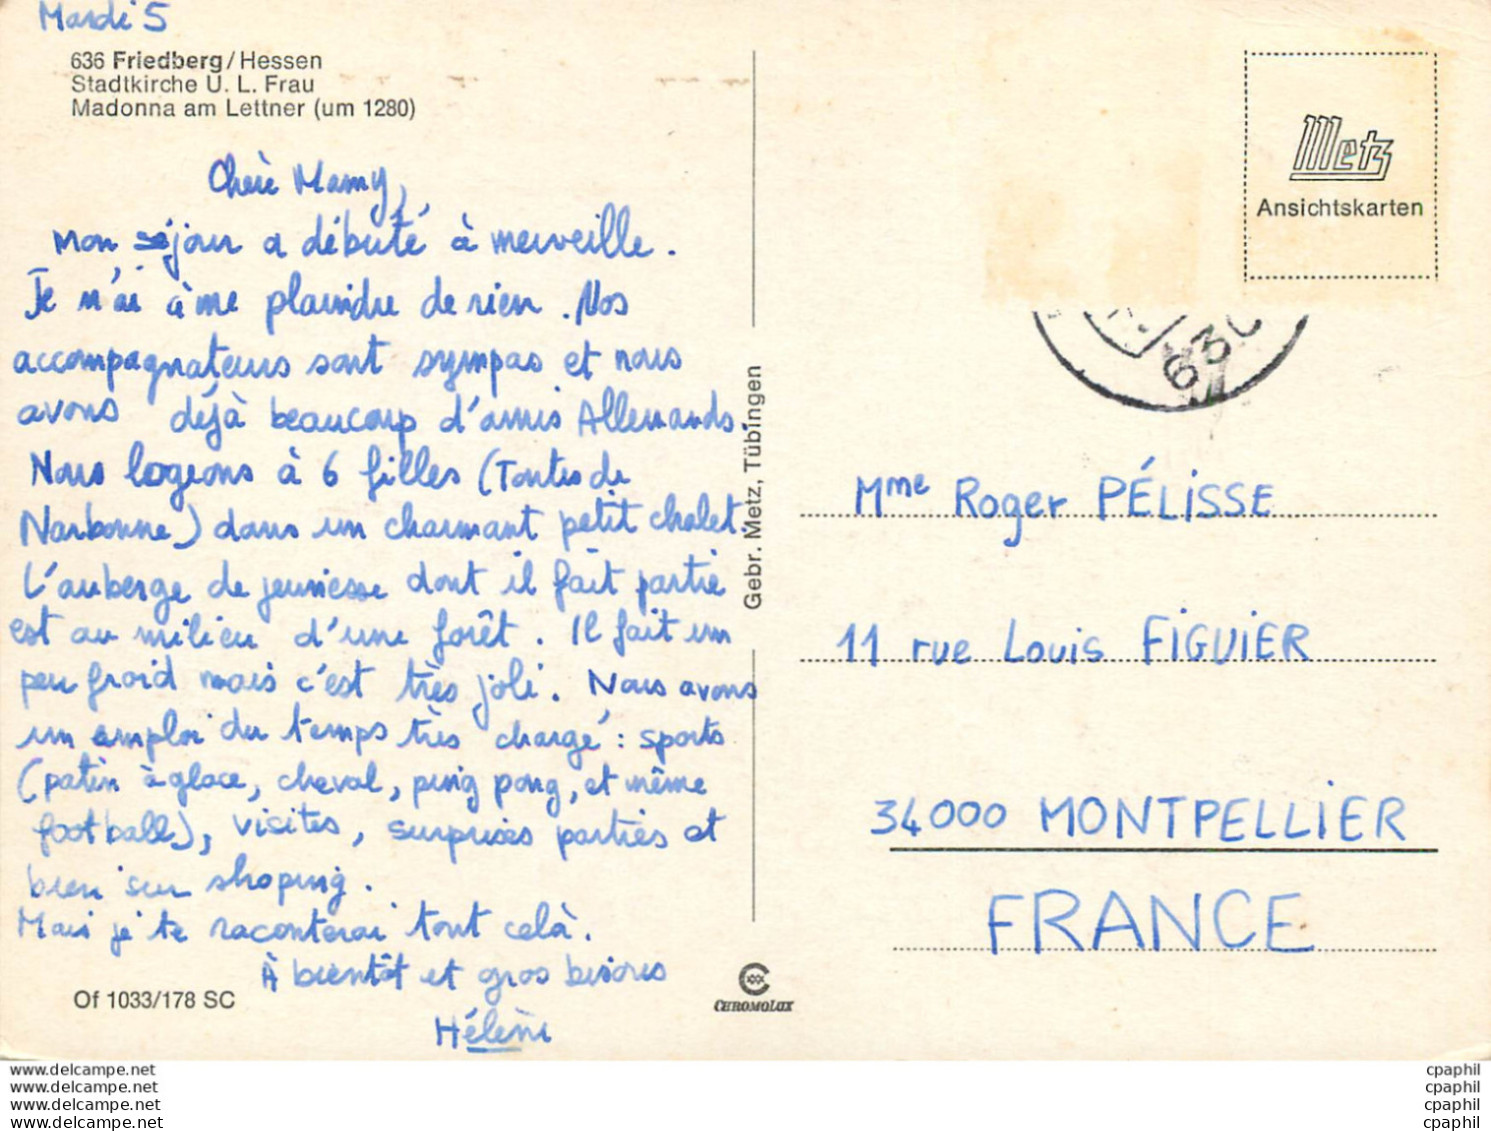 Mardi 5
636 Friedberg/Hessen
Stadtkirche U. L. Frau
Madonna am Lettner (um 1280)
Chère Mamy,
Mon séjour a débuté à merveille.
Je n'ai à me plaindre de rien. Nos
accompagnateurs sont sympas et nous
avons déjà beaucoup d'amis Allemands.
Nous logeons à 6 filles (Toutes de
Narbonne) dans un charmant petit chalet.
L'auberge de jeunesse dont il fait partie
est au milieu d'une forêt. Il fait un
peu froid mais c'est très joli. Nous avons
un emploi du temps très chargé : sports
(patin à glace, cheval, ping pong, et même
football), visites, surprises parties et
bien sur shoping.
Mais je te raconterai tout celà.
À bientôt et gros bisous
Hélène
Of 1033/178 SC
Gebr. Metz, Tübingen
CHROMOLUX
Metz
Ansichtskarten
630
Mme Roger PÉLISSE
11 rue Louis FIGUIER
34000 MONTPELLIER
FRANCE
www.delcampe.net
www.delcampe.net
www.delcampe.net
www.delcampe.net
cpaphil
cpaphil
cpaphil
cpaphil